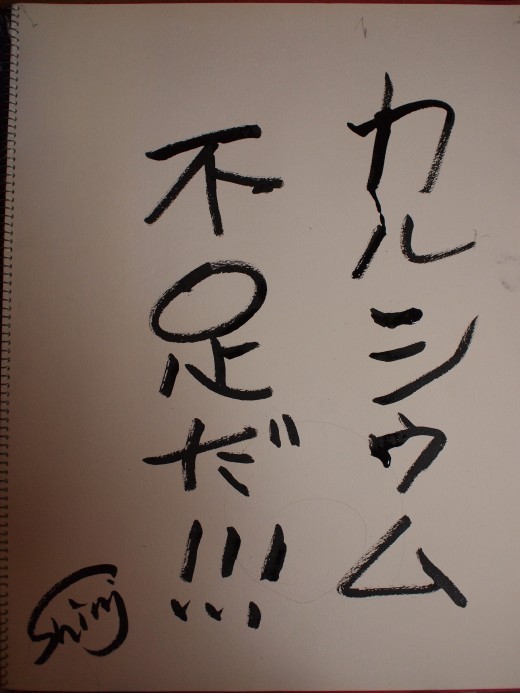 カルシウム
不足だ!!!
Shinj